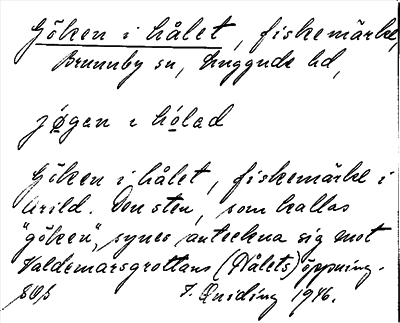 Göken i hålet, fiskemärke,
Brunnby sn, Luggude hd,
jøgen i hólad
Göken i hålet, fiskemärke i
Arild. Den sten, som kallas
"göken", synes anteckna sig mot
Valdemarsgrottans (Hålets) öppning.
1946.